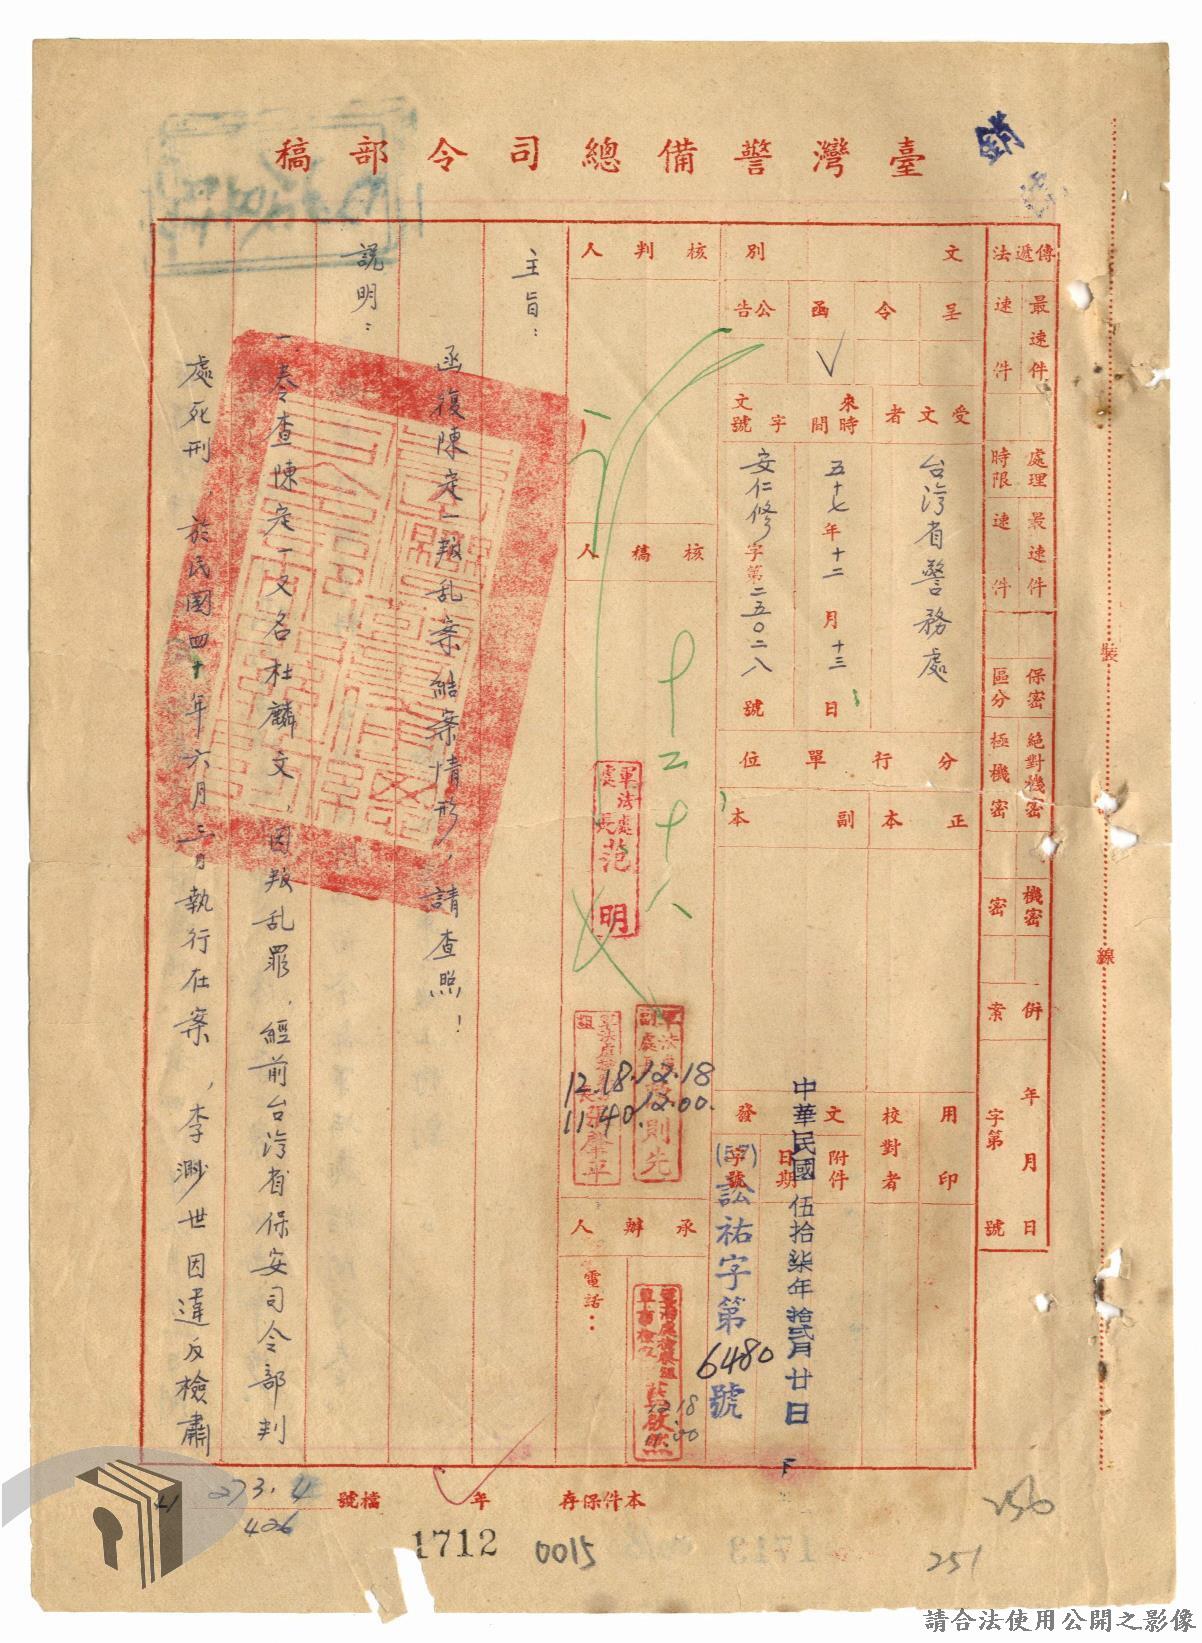 臺灣警備總司令部稿
銷
裝
線
傳遞法
最速件
速件
處理時限
最速件
速件
保密區分
絕對機密
極機密
機密
密
併案
年月日
字第號
文別
呈
令
函
公告
✓
受文者
台湾省警務處
來文時間
五十七年十二月十三日
字號
安仁修字第二五〇二八號
分行單位
正本
副本
用印
校對者
發文
附件
日期
字號
中華民國伍拾柒年拾貳月廿日
訟祐字第6480號
核判人
核稿人
十二十八
軍法處處長范明
軍法處副處長
則先
12.18
12.00.
組長張肇平
12.18.
11.40.
承辦人
電話：
啟然
主旨：
函復陳定一叛乱案結案情形，請查照！
說明：
一、奉查陳定一又名杜麟文，因叛乱罪，經前台湾省保安司令部判
處死刑，於民國四十年六月三日執行在案，李渺世因違反檢肅
本件保存
年
檔號
273.4
426
1712
0015
250
251
請合法使用公開之影像